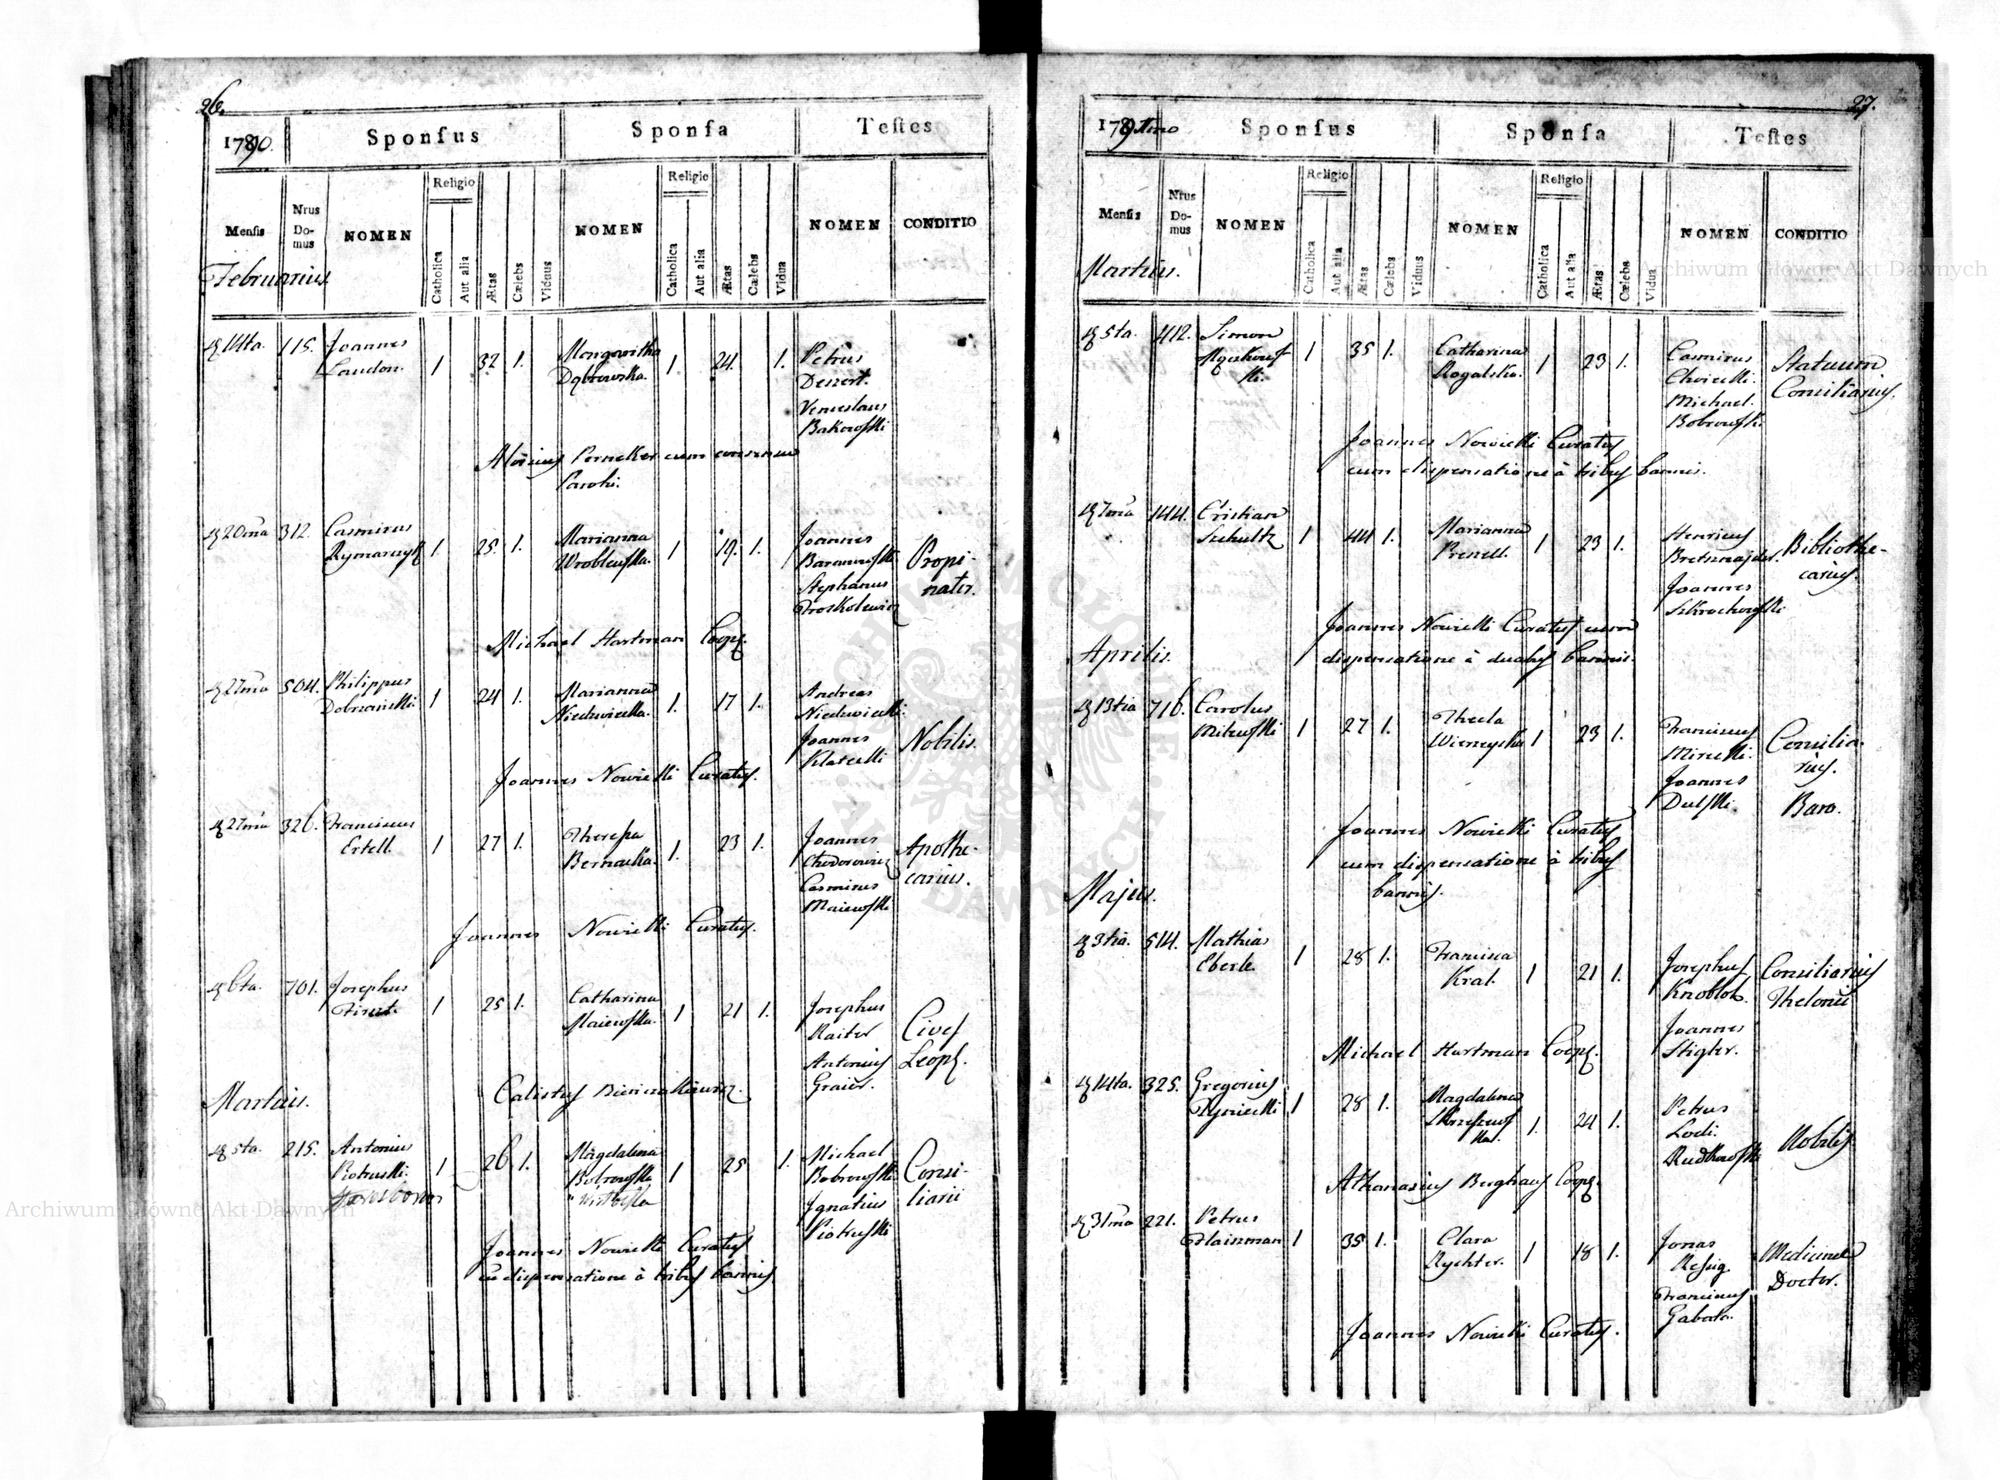 26.
1790.
Sponsus
Sponsa
Testes
Mensis
Nrus Do-mus
NOMEN
Religio
Catholica
Aut alia
Ætas
Cælebs
Viduus
NOMEN
Religio
Catholica
Aut alia
Ætas
Cælebs
Vidua
NOMEN
CONDITIO
Februarius
14ta. 115. Joannes 1 32 1. 1. 24. 1. Petrus
Laudon. Dąbrowska. Dessert.
Venceslaus
Bakowski
Aloisius Pernekker cum consensu
Parochi.
20ma 312. Casimirus Marianna Joannes
1 25. 1. Wroblewska. 1 19. 1. Baranowski Propi-
Stephanus nator.
Proskolewicz
Michael Hartman Coop.
27ma 504. Philippus 1 24 1. Marianna 1. 17 1. Andreas
Dobrzański. Niedzwiecka. Niedzwiecki.
Joannes Nobilis.
Klatecki
Joannes Nowicki Curatus.
27ma 326. Franciscus Theressa Joannes
Ertell. 1 27 1. Bernacka. 1. 23 1. Chodorowicz Apothe-
Casimirus carius.
Maiewski
Joannes Nowicki Curatus.
6ta. 701. Josephus 1 25 1. Catharina 1 21 1. Josephus
Maiewska. Raiter Cives
Antonius Leop.
Graier.
Martius.
5ta. 215. Antonius 1 26 1. Magdalena 1 25 1. Michael
Piotruski. Bobrowska Bobrowski Consi-
Ignatius liarii
Piotruski
Joannes Nowicki Curatus
cum dispensatione à tribus bannis.
27.
1790
Sponsus
Sponsa
Testes
Mensis
Nrus Do-mus
NOMEN
Religio
Catholica
Aut alia
Ætas
Cælebs
Viduus
NOMEN
Religio
Catholica
Aut alia
Ætas
Cælebs
Vidua
NOMEN
CONDITIO
Martius.
5ta. 412. Simon 1 35 1. Catharina 1 23 1. Casimirus Statuum
Rogalska. Consiliarius.
Michael
Bobrowski
Joannes Nowicki Curatus
cum dispensatione à tribus bannis.
7ma 144. Cristian 1 44 1. Marianna 1 23 1. Henricus Bibliothe-
Schultz Bretsnajder. carius.
Joannes
Skrochowski
Joannes Nowicki Curatus cum
dispensatione à duabus bannis.
Aprilis.
13tia 716. Carolus 1 27 1. Thecla 1 23 1. Franciscus Consilia-
Mirecki. rius.
Joannes
Dulski. Baro.
Joannes Nowicki Curatus
cum dispensatione à tribus
bannis.
Majus.
3tia. 514. Mathias 1 28 1. Francisca 1 21 1. Josephus Consiliarius
Eberle. Kral. Knobloh. Thelonii
Joannes
Stigler.
Michael Hartman Coop.
14ta. 325. Gregorius 1 28 1. Magdalena 1. 24 1. Petrus
Lodi. Nobilis.
Rudkowski
Athanasius Berghaus Coop.
31ma 221. Petrus 1 35 1. Clara 1 18 1. Jonas Medicinae
Hainman Rychter. Doctor.
Franciscus
Joannes Nowicki Curatus.
Archiwum Główne Akt Dawnych
Archiwum Główne Akt Dawnych
ARCHIWUM GŁÓWNE AKT DAWNYCH